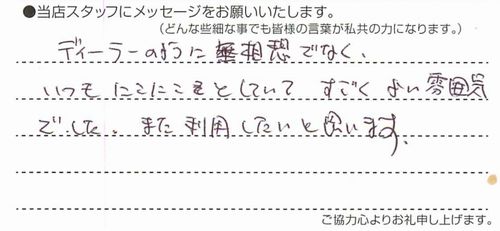 ●当店スタッフにメッセージをお願いいたします。
(どんな些細な事でも皆様の言葉が私共の力になります。)
ディーラーのように無相想でなく、
いつもにこにことしていてすごくよい雰囲気
でした。また利用したいと思います。
ご協力心よりお礼申し上げます。